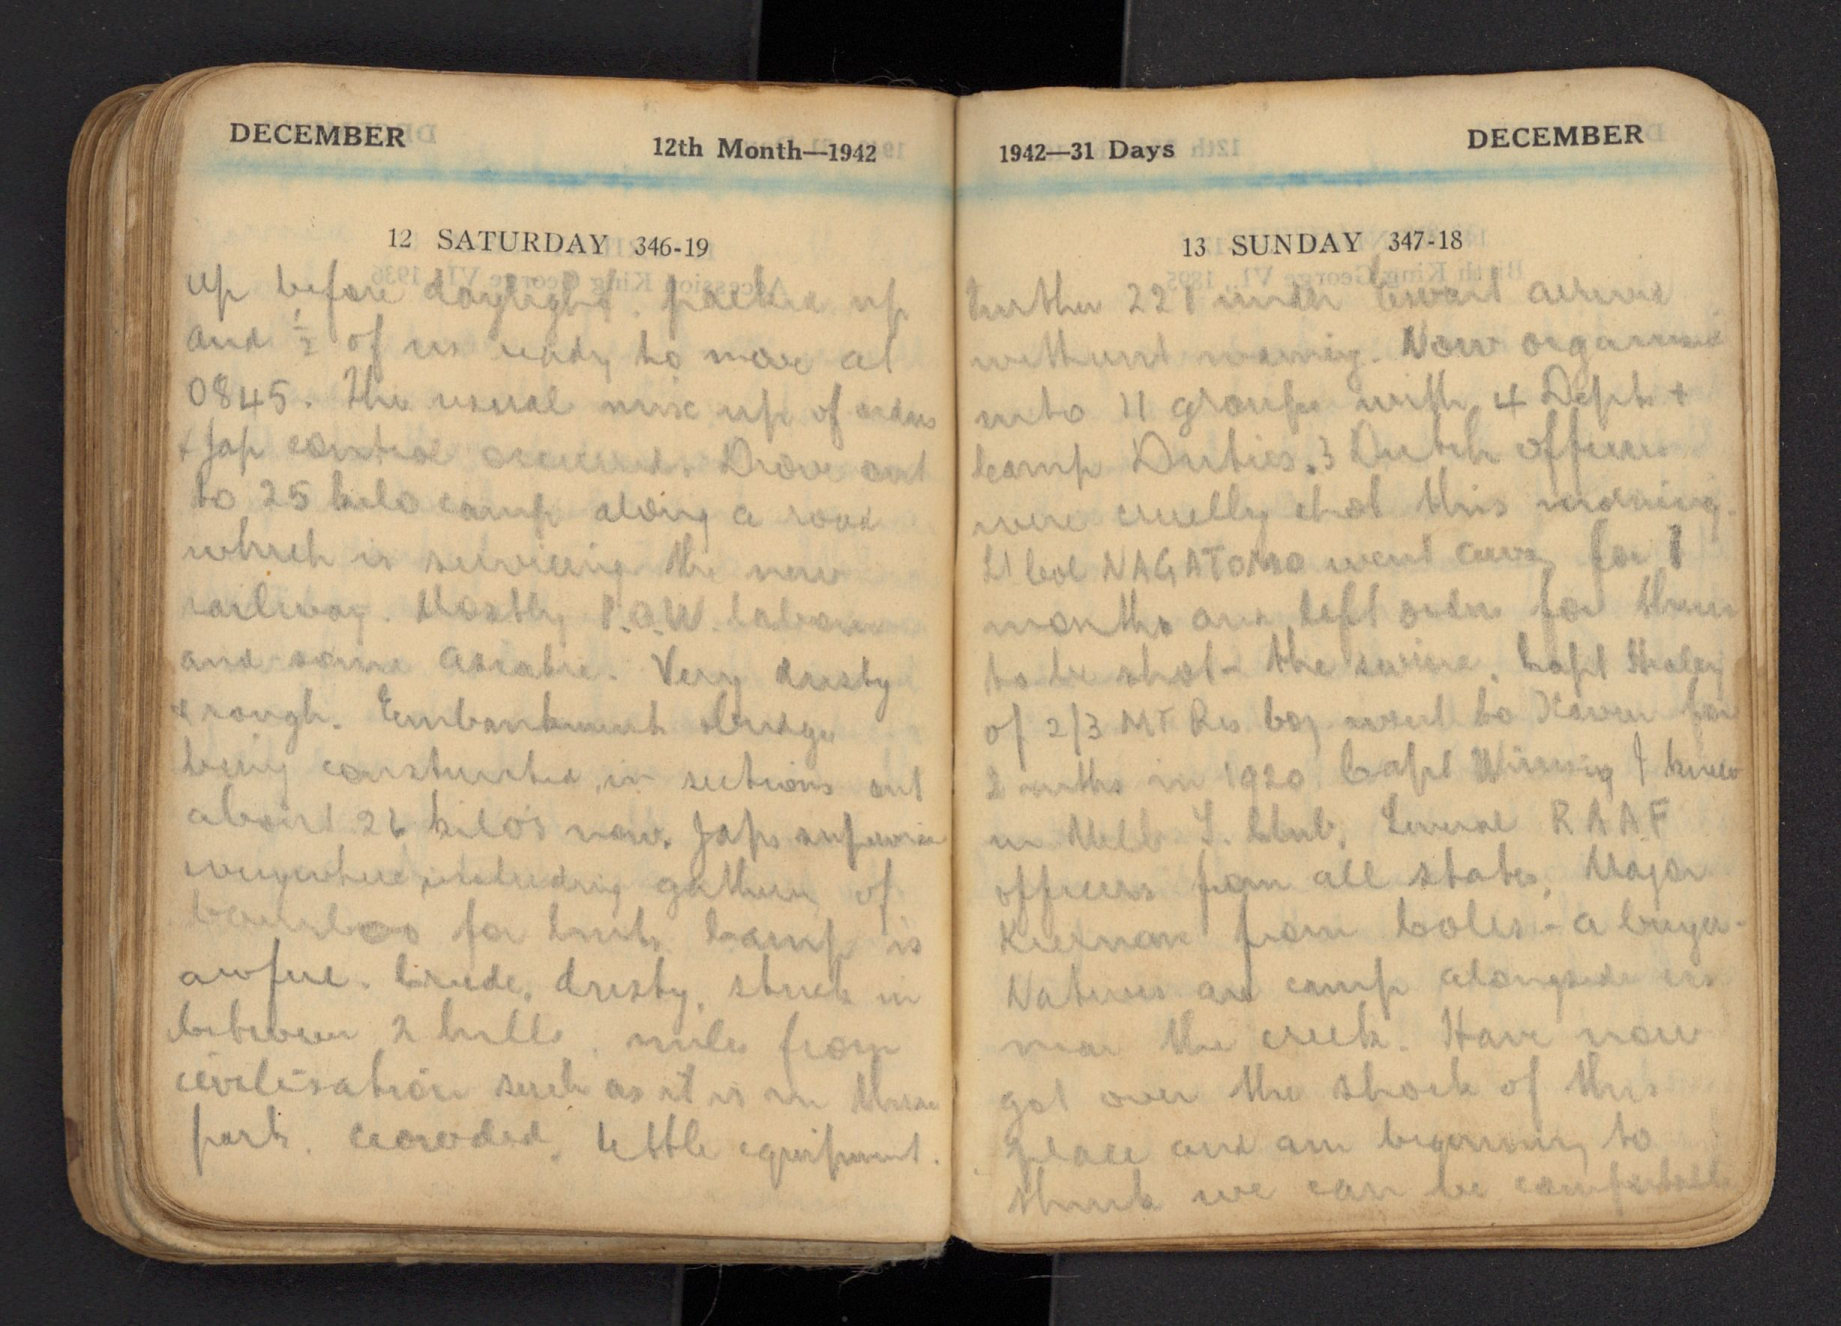 DECEMBER
12th Month—1942
12 SATURDAY 346-19
up before daylight. packed up
and ½ of us ready to move at
0845. The usual mix up of orders
+ Jap control occurred. Drove out
to 25 kilo camp along a road
which is servicing the new
railway. Mostly P.O.W. labour
and some Asiatic. Very dusty
& rough. Embankment bridges
being constructed in sections out
about 26 kilos now. Japs supervise
everywhere, including gathering of
bamboo for huts. Camp is
awful. Crude, dusty, stuck in
between 2 hills, miles from
civilisation such as it is in these
parts. Crowded, little equipment.
1942—31 Days
DECEMBER
13 SUNDAY 347-18
further 221 under arrived
without warning. Now organised
into 11 groups with 4 Dept +
Camp Duties. 3 Dutch officers
were cruelly shot this morning.
Lt Col NAGATOMO went away for 1
months and left orders for them
to be shot - the swine. Capt Healey
of 2/3 MT Res Coy went to for
2 mths in 1920. Capt Winning I knew
in Melb Y. Club. Several RAAF
officers from all states, Major
Kiernan from Coles - a buyer -
Natives are camp alongside us
near the creek. Have now
got over the shock of this
place and am beginning to
think we can be comfortable